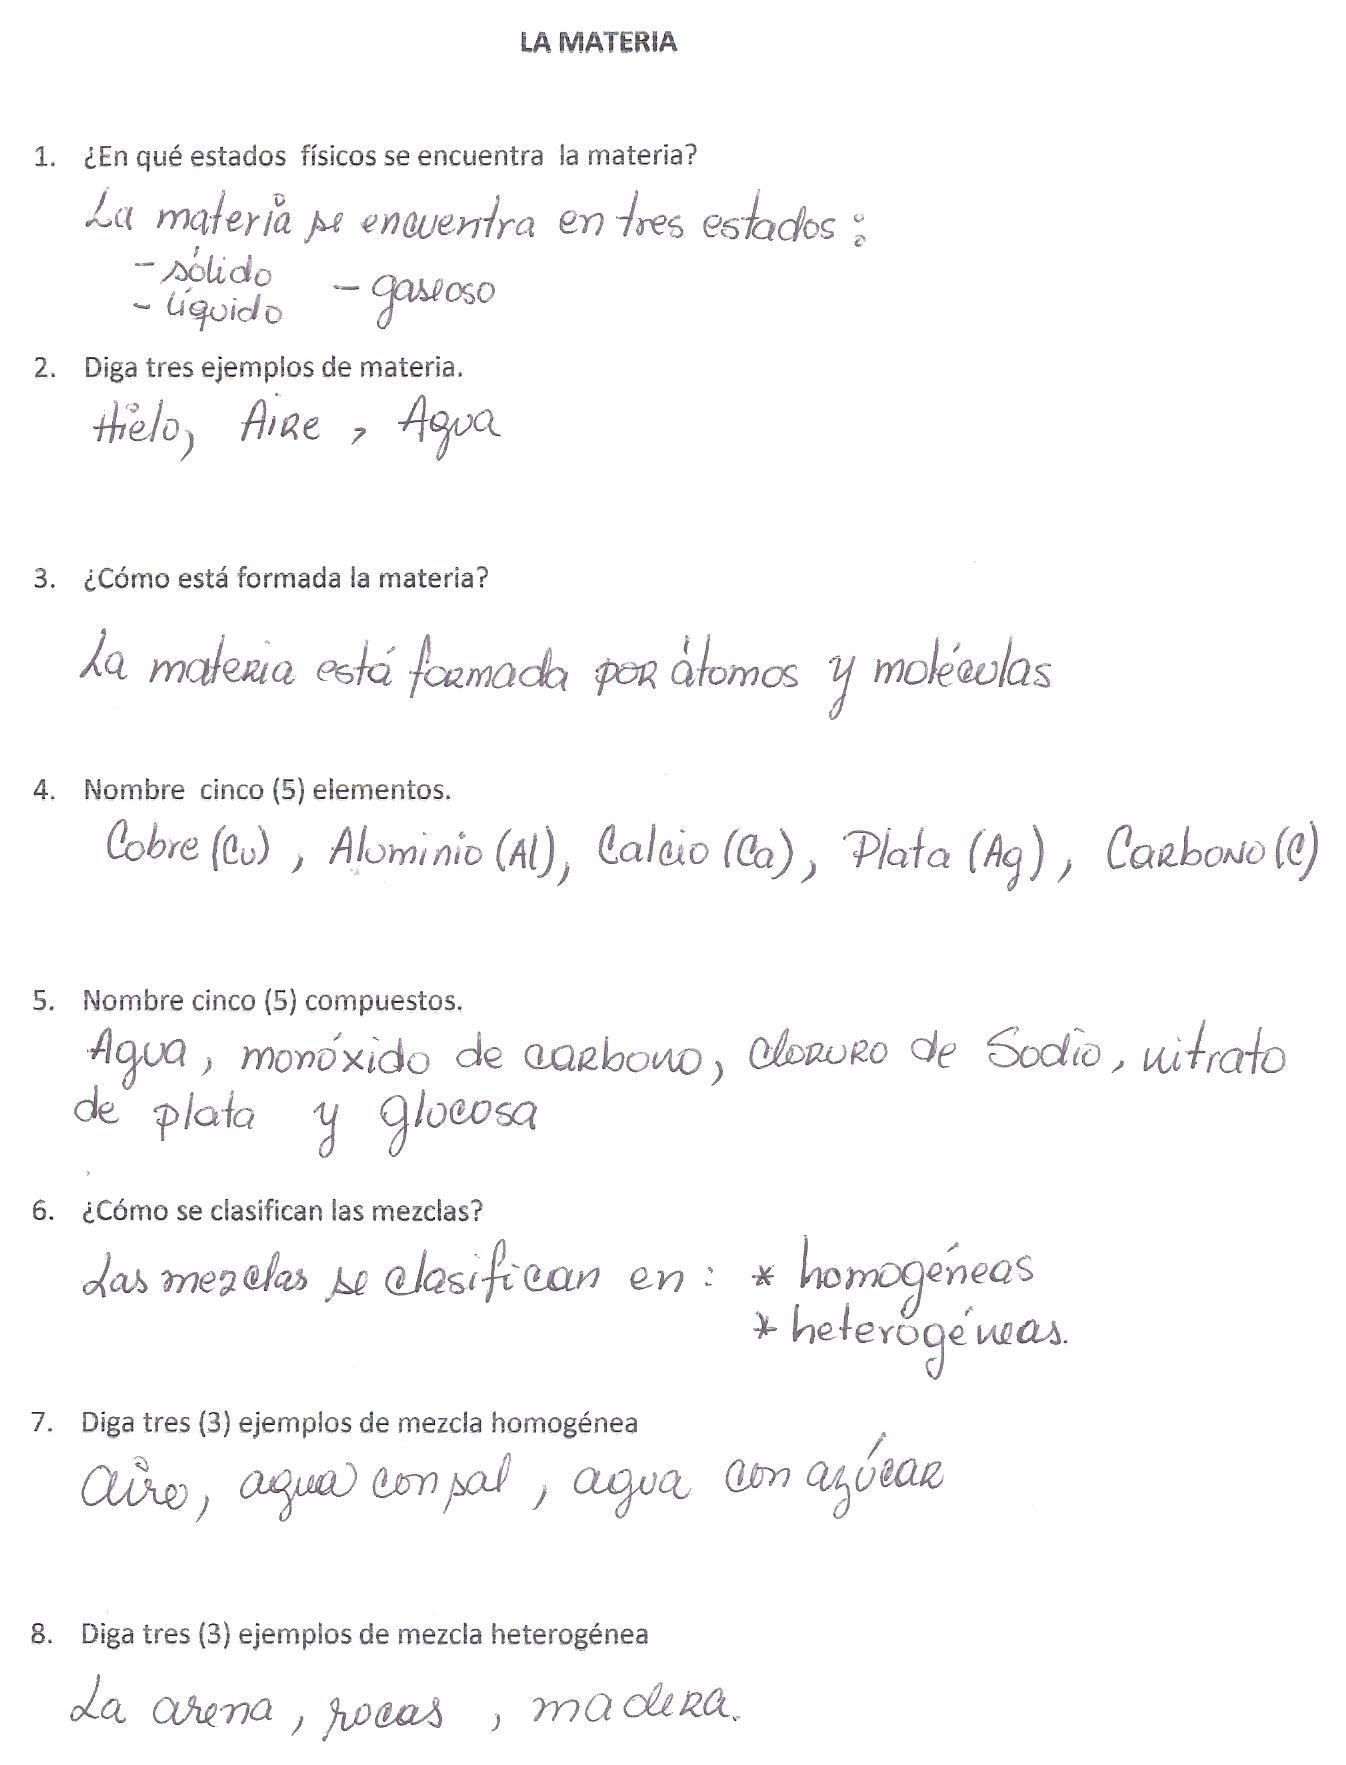 LA MATERIA
1. ¿En qué estados físicos se encuentra la materia?
La materia se encuentra en tres estados:
- sólido
- líquido
- gaseoso
2. Diga tres ejemplos de materia.
Hielo, Aire, Agua
3. ¿Cómo está formada la materia?
La materia está formada por átomos y moléculas
4. Nombre cinco (5) elementos.
Cobre (Cu), Aluminio (Al), Calcio (Ca), Plata (Ag), Carbono (C)
5. Nombre cinco (5) compuestos.
Agua, monóxido de carbono, cloruro de Sodio, nitrato
de plata y glucosa
6. ¿Cómo se clasifican las mezclas?
Las mezclas se clasifican en: * homogéneas
* heterogéneas.
7. Diga tres (3) ejemplos de mezcla homogénea
aire, agua con sal, agua con azúcar
8. Diga tres (3) ejemplos de mezcla heterogénea
La arena, rocas, madera.